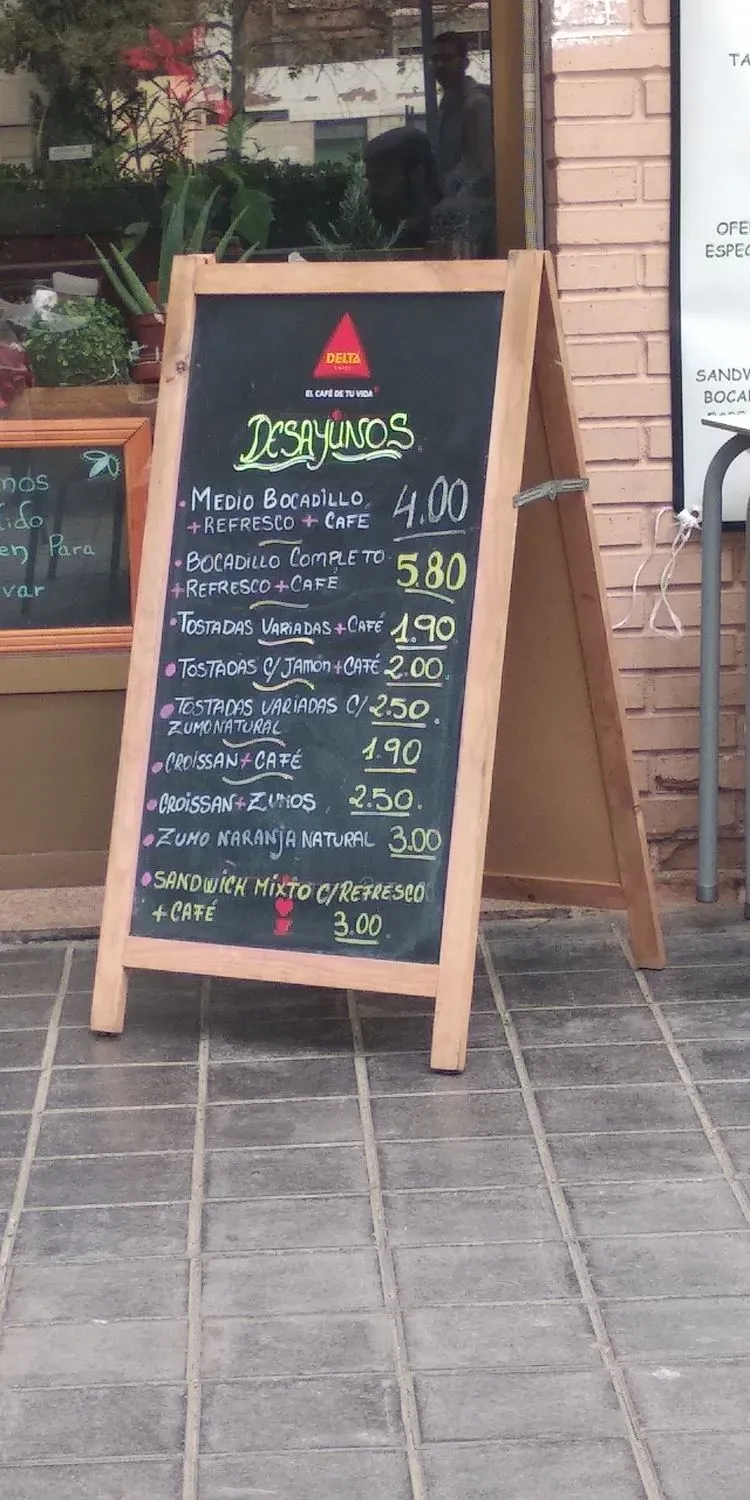 DELTA
CAFES
EL CAFÉ DE TU VIDA
DESAYUNOS
• MEDIO BOCADILLO
+ REFRESCO + CAFÉ 4.00
• BOCADILLO COMPLETO
+ REFRESCO + CAFÉ 5.80
• TOSTADAS VARIADAS + CAFÉ 1.90
• TOSTADAS C/JAMON + CAFÉ 2.00
• TOSTADAS VARIADAS C/ 2.50
ZUMO NATURAL
• CROISSAN + CAFÉ 1.90
• CROISSAN + ZUMOS 2.50
• ZUMO NARANJA NATURAL 3.00
• SANDWICH MIXTO C/REFRESCO
+ CAFÉ 3.00
mos
ido
en Para
var
TA
OFE
ESPEC
SANDW
BOCA